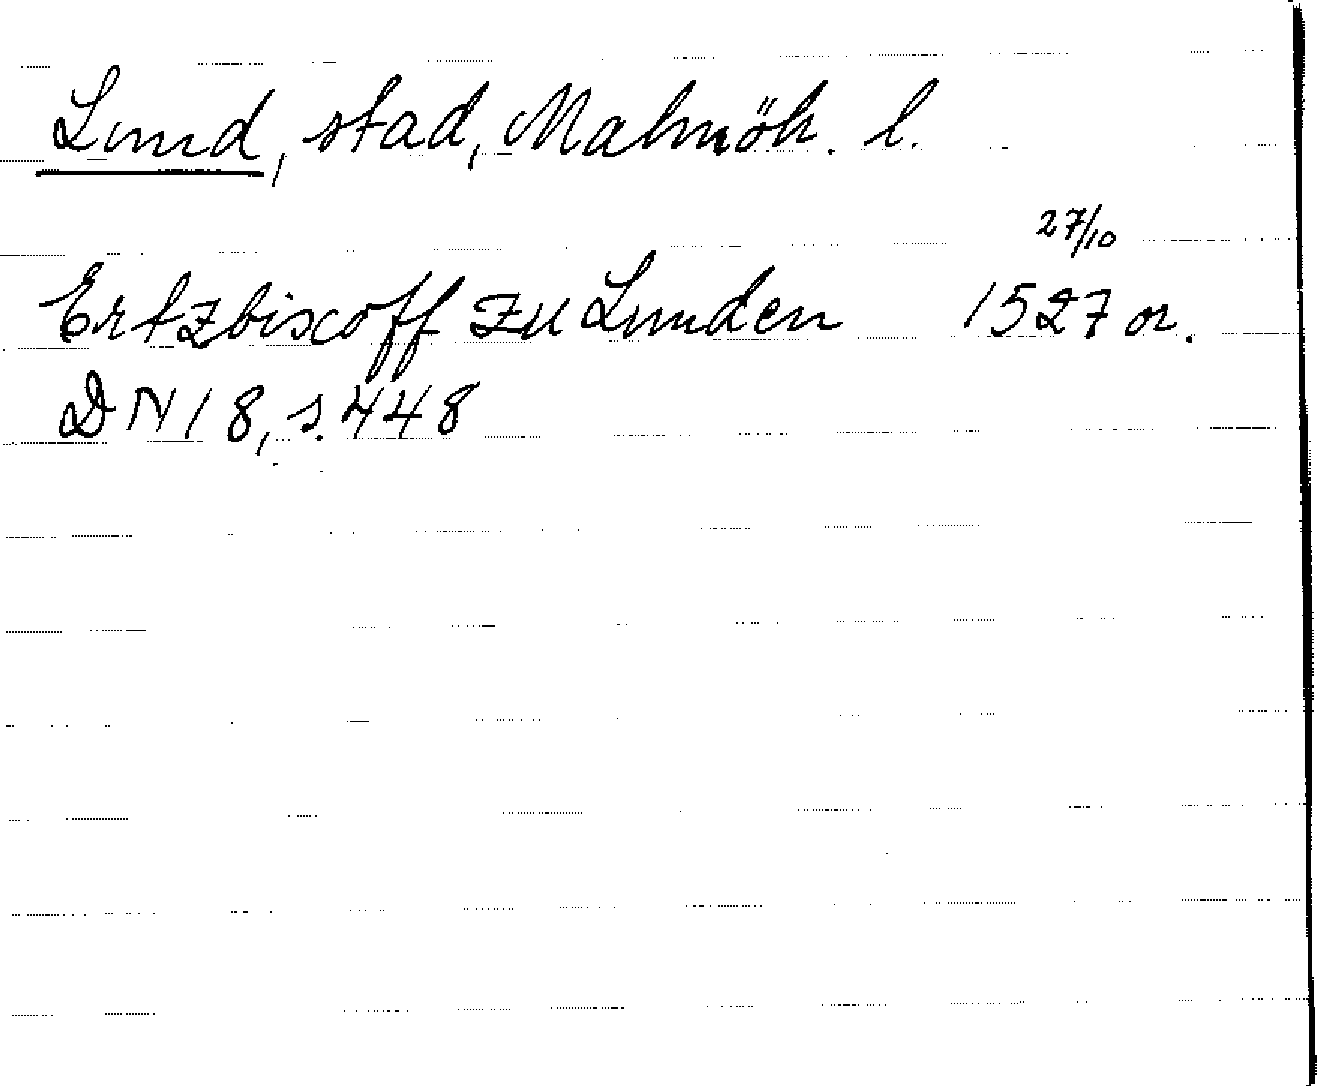 Lund, stad, Malmöh. l.
27/10
Ertzbiscoff zu Lunden 1527 or.
DN 18, s. 448